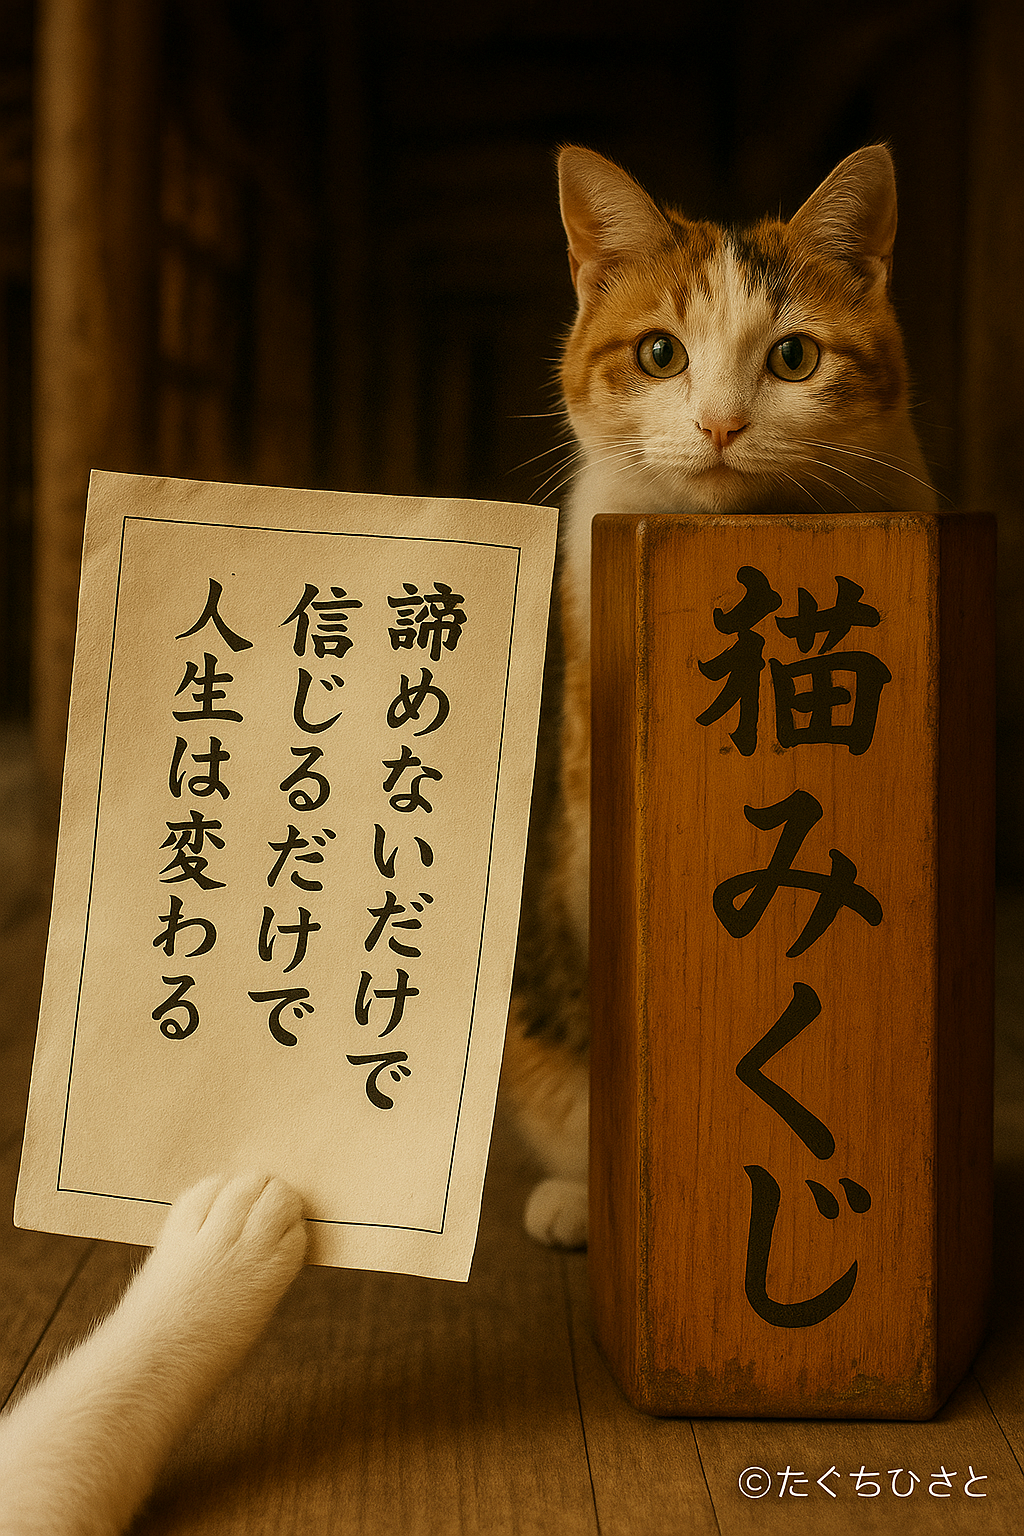 諦めないだけで
信じるだけで
人生は変わる
猫みくじ
©たぐちひさと